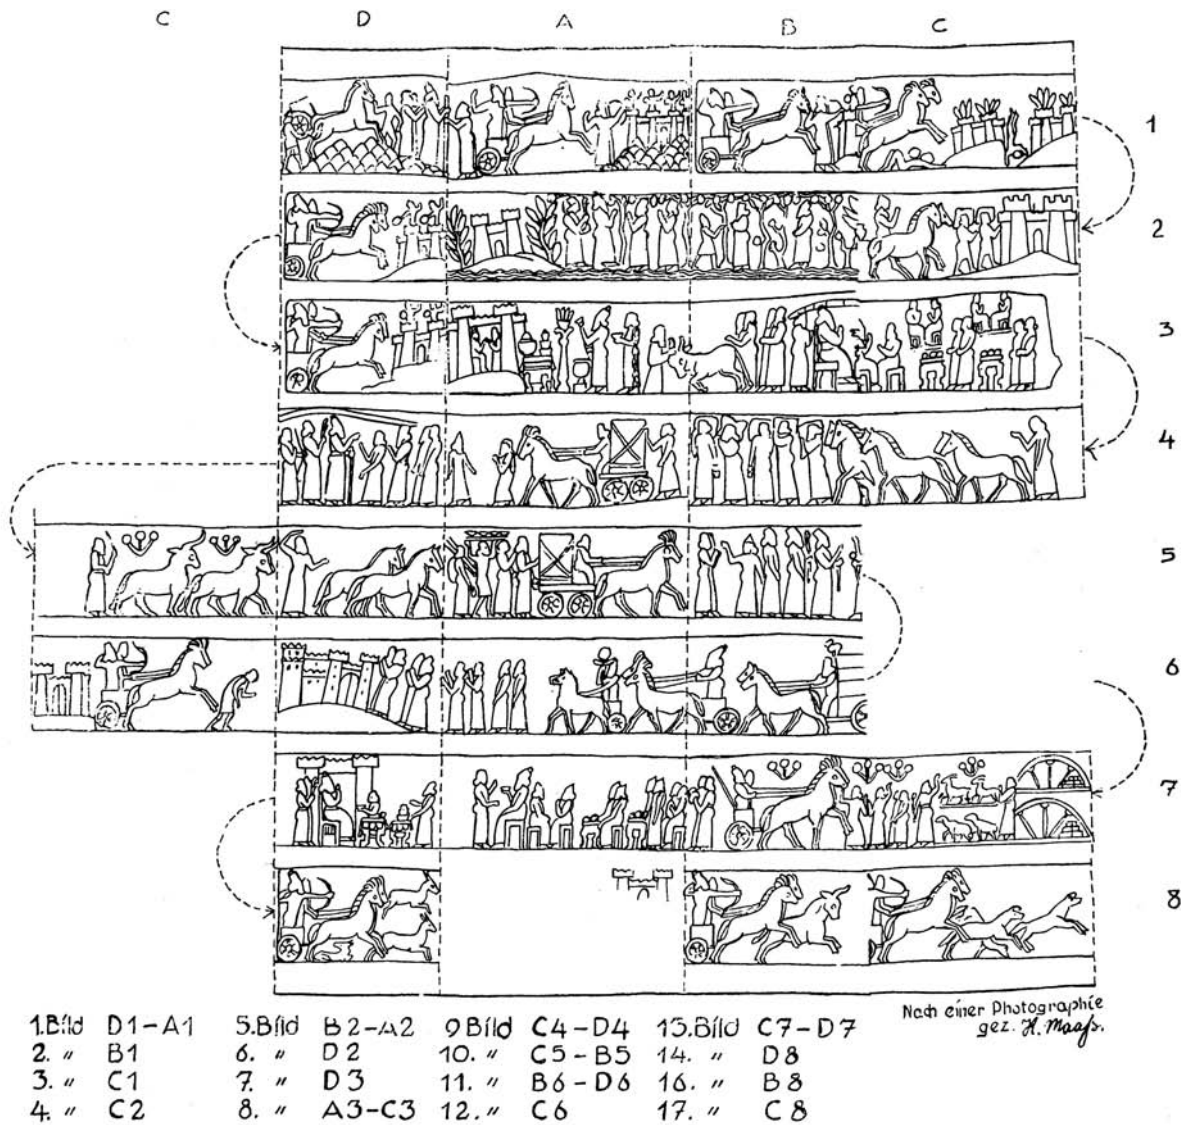 C D A B C
1
2
3
4
5
6
7
8
Nach einer Photographie
gez. H. Maaß.
1.Bild D1-A1 5.Bild B2-A2 9 Bild C4-D4 13.Bild C7-D7
2. " B1 6. " D2 10. " C5-B5 14. " D8
3. " C1 7. " D3 11. " B6-D6 16. " B8
4. " C2 8. " A3-C3 12. " C6 17. " C8